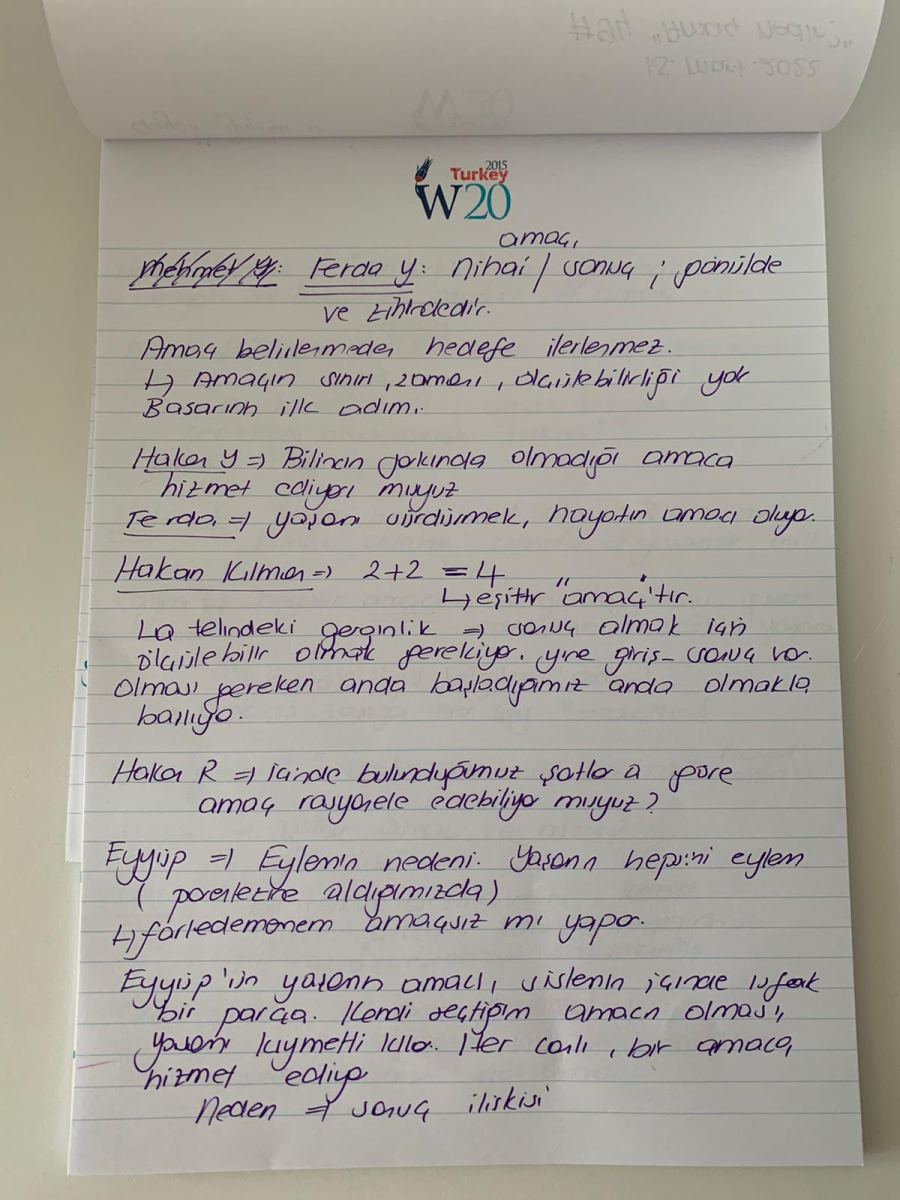 #SH "Amaç Nedir?"
12. Mart. 2022
2015
Turkey
W20
amaç,
Mehmet Y: Ferda Y: Nihai / sonuç ; gönülde
ve zihindedir.
Amaç belirlenmeden hedefe ilerlenmez.
↳ Amaçın sınırı, zamanı, ölçülebilirliği yok
Başarının ilk adımı.
Hakan Y => Bilincin farkında olmadığı amaca
hizmet ediyor muyuz
Ferda. => yaşamı sürdürmek, hayatın amacı oluyor.
Hakan Kılınan => 2+2 = 4
↳ eşittir "amaç"tır.
La telindeki gerginlik => sonuç almak için
ölçülebilir olmak gerekiyor. yine giriş- sonuç var.
Olması gereken anda başladığımız anda olmakla
başlıyor.
Hakan R => içinde bulunduğumuz şartlara göre
amaç rasyonele edebiliyor muyuz?
Eyyüp => Eylemin nedeni. Yaşamın hepsini eylem
( parantezine aldığımızda)
↳ farkedemanem amaçsız mı yapar.
Eyyüp'ün yaşamın amacı, sistemin içinde ufak
bir parça. Kendi seçtiğim amacın olması,
yaşamı kıymetli kılar. Her canlı, bir amaca
hizmet ediyor
Neden => sonuç ilişkisi